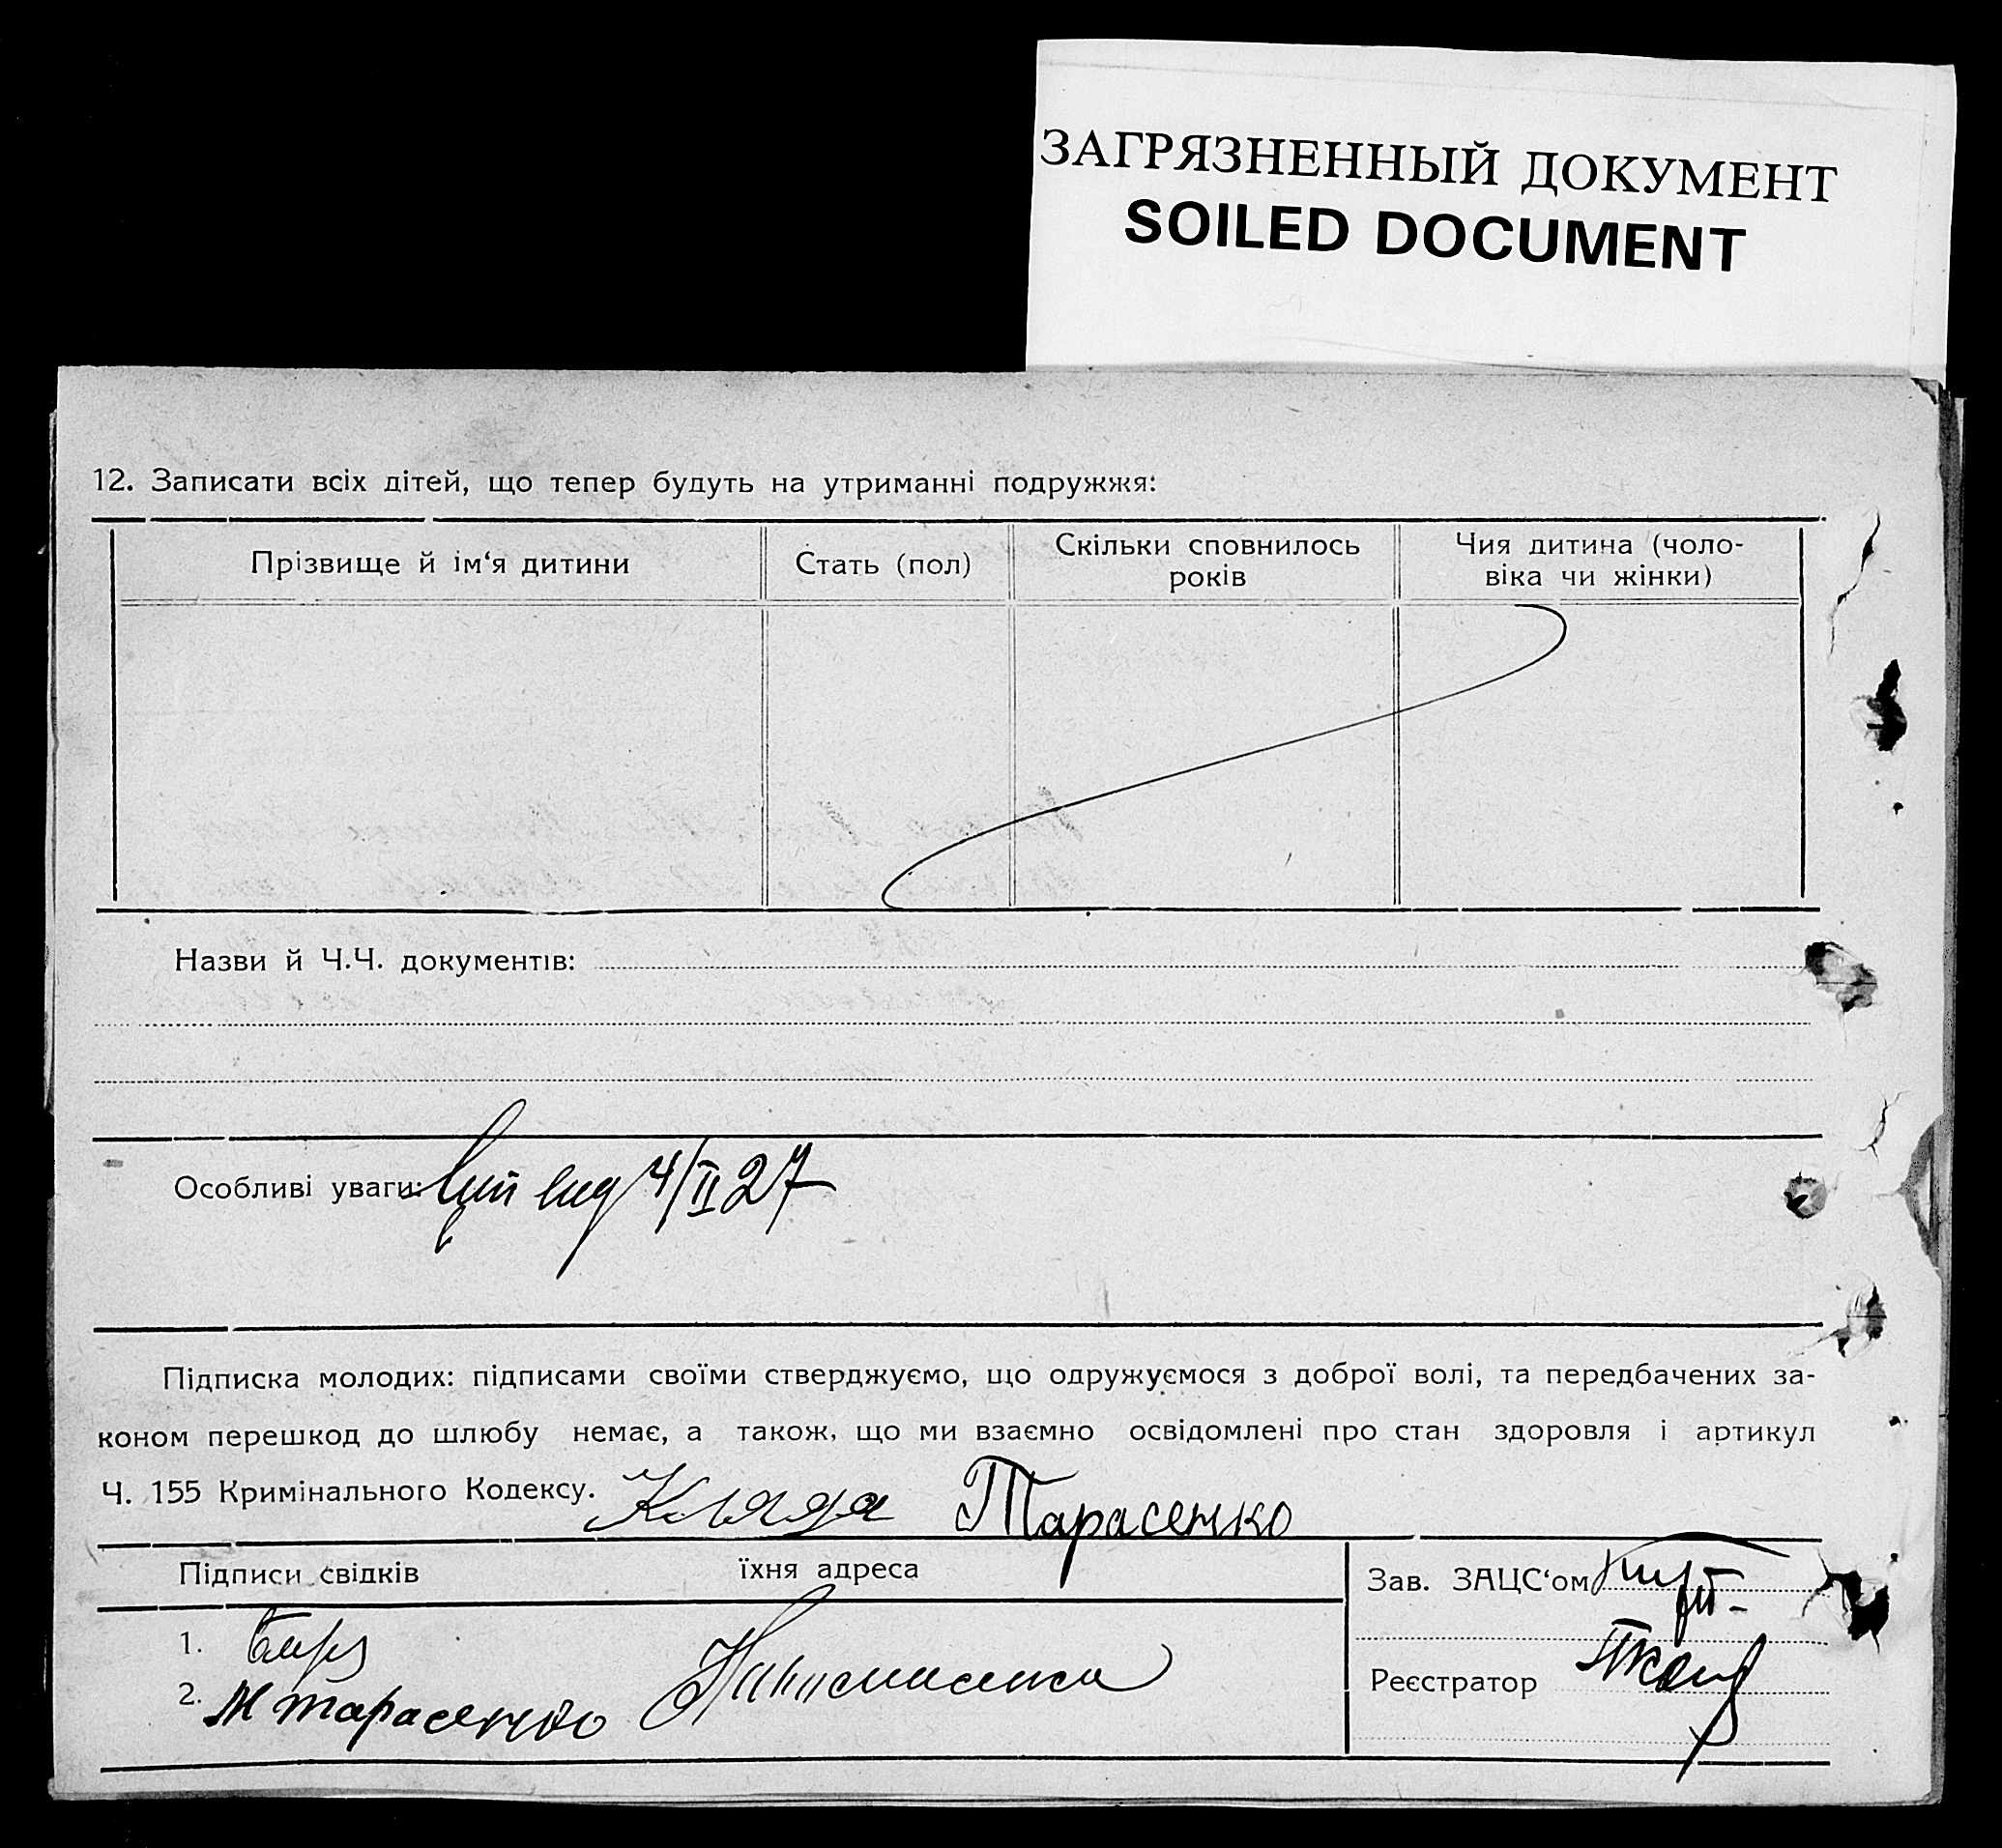 ЗАГРЯЗНЕННЫЙ ДОКУМЕНТ
SOILED DOCUMENT
12. Записати всіх дітей, що тепер будуть на утриманні подружжя:
Прізвище й ім‘я дитини
Стать (пол)
Скільки сповнилось
років
Чия дитина (чоло-
віка чи жінки)
Назви й Ч.Ч. документів:
Особливі уваги: 4/II 27
Підписка молодих: підписами своїми стверджуємо, що одружуємося з доброї волі, та передбачених за-
коном перешкод до шлюбу немає, а також, що ми взаємно освідомлені про стан здоровля і артикул
Ч. 155 Кримінального Кодексу. Тарасенко
Підписи свідків
їхня адреса
Зав. ЗАЦС‘ом
1.
2. М Тарасенко
Реєстратор